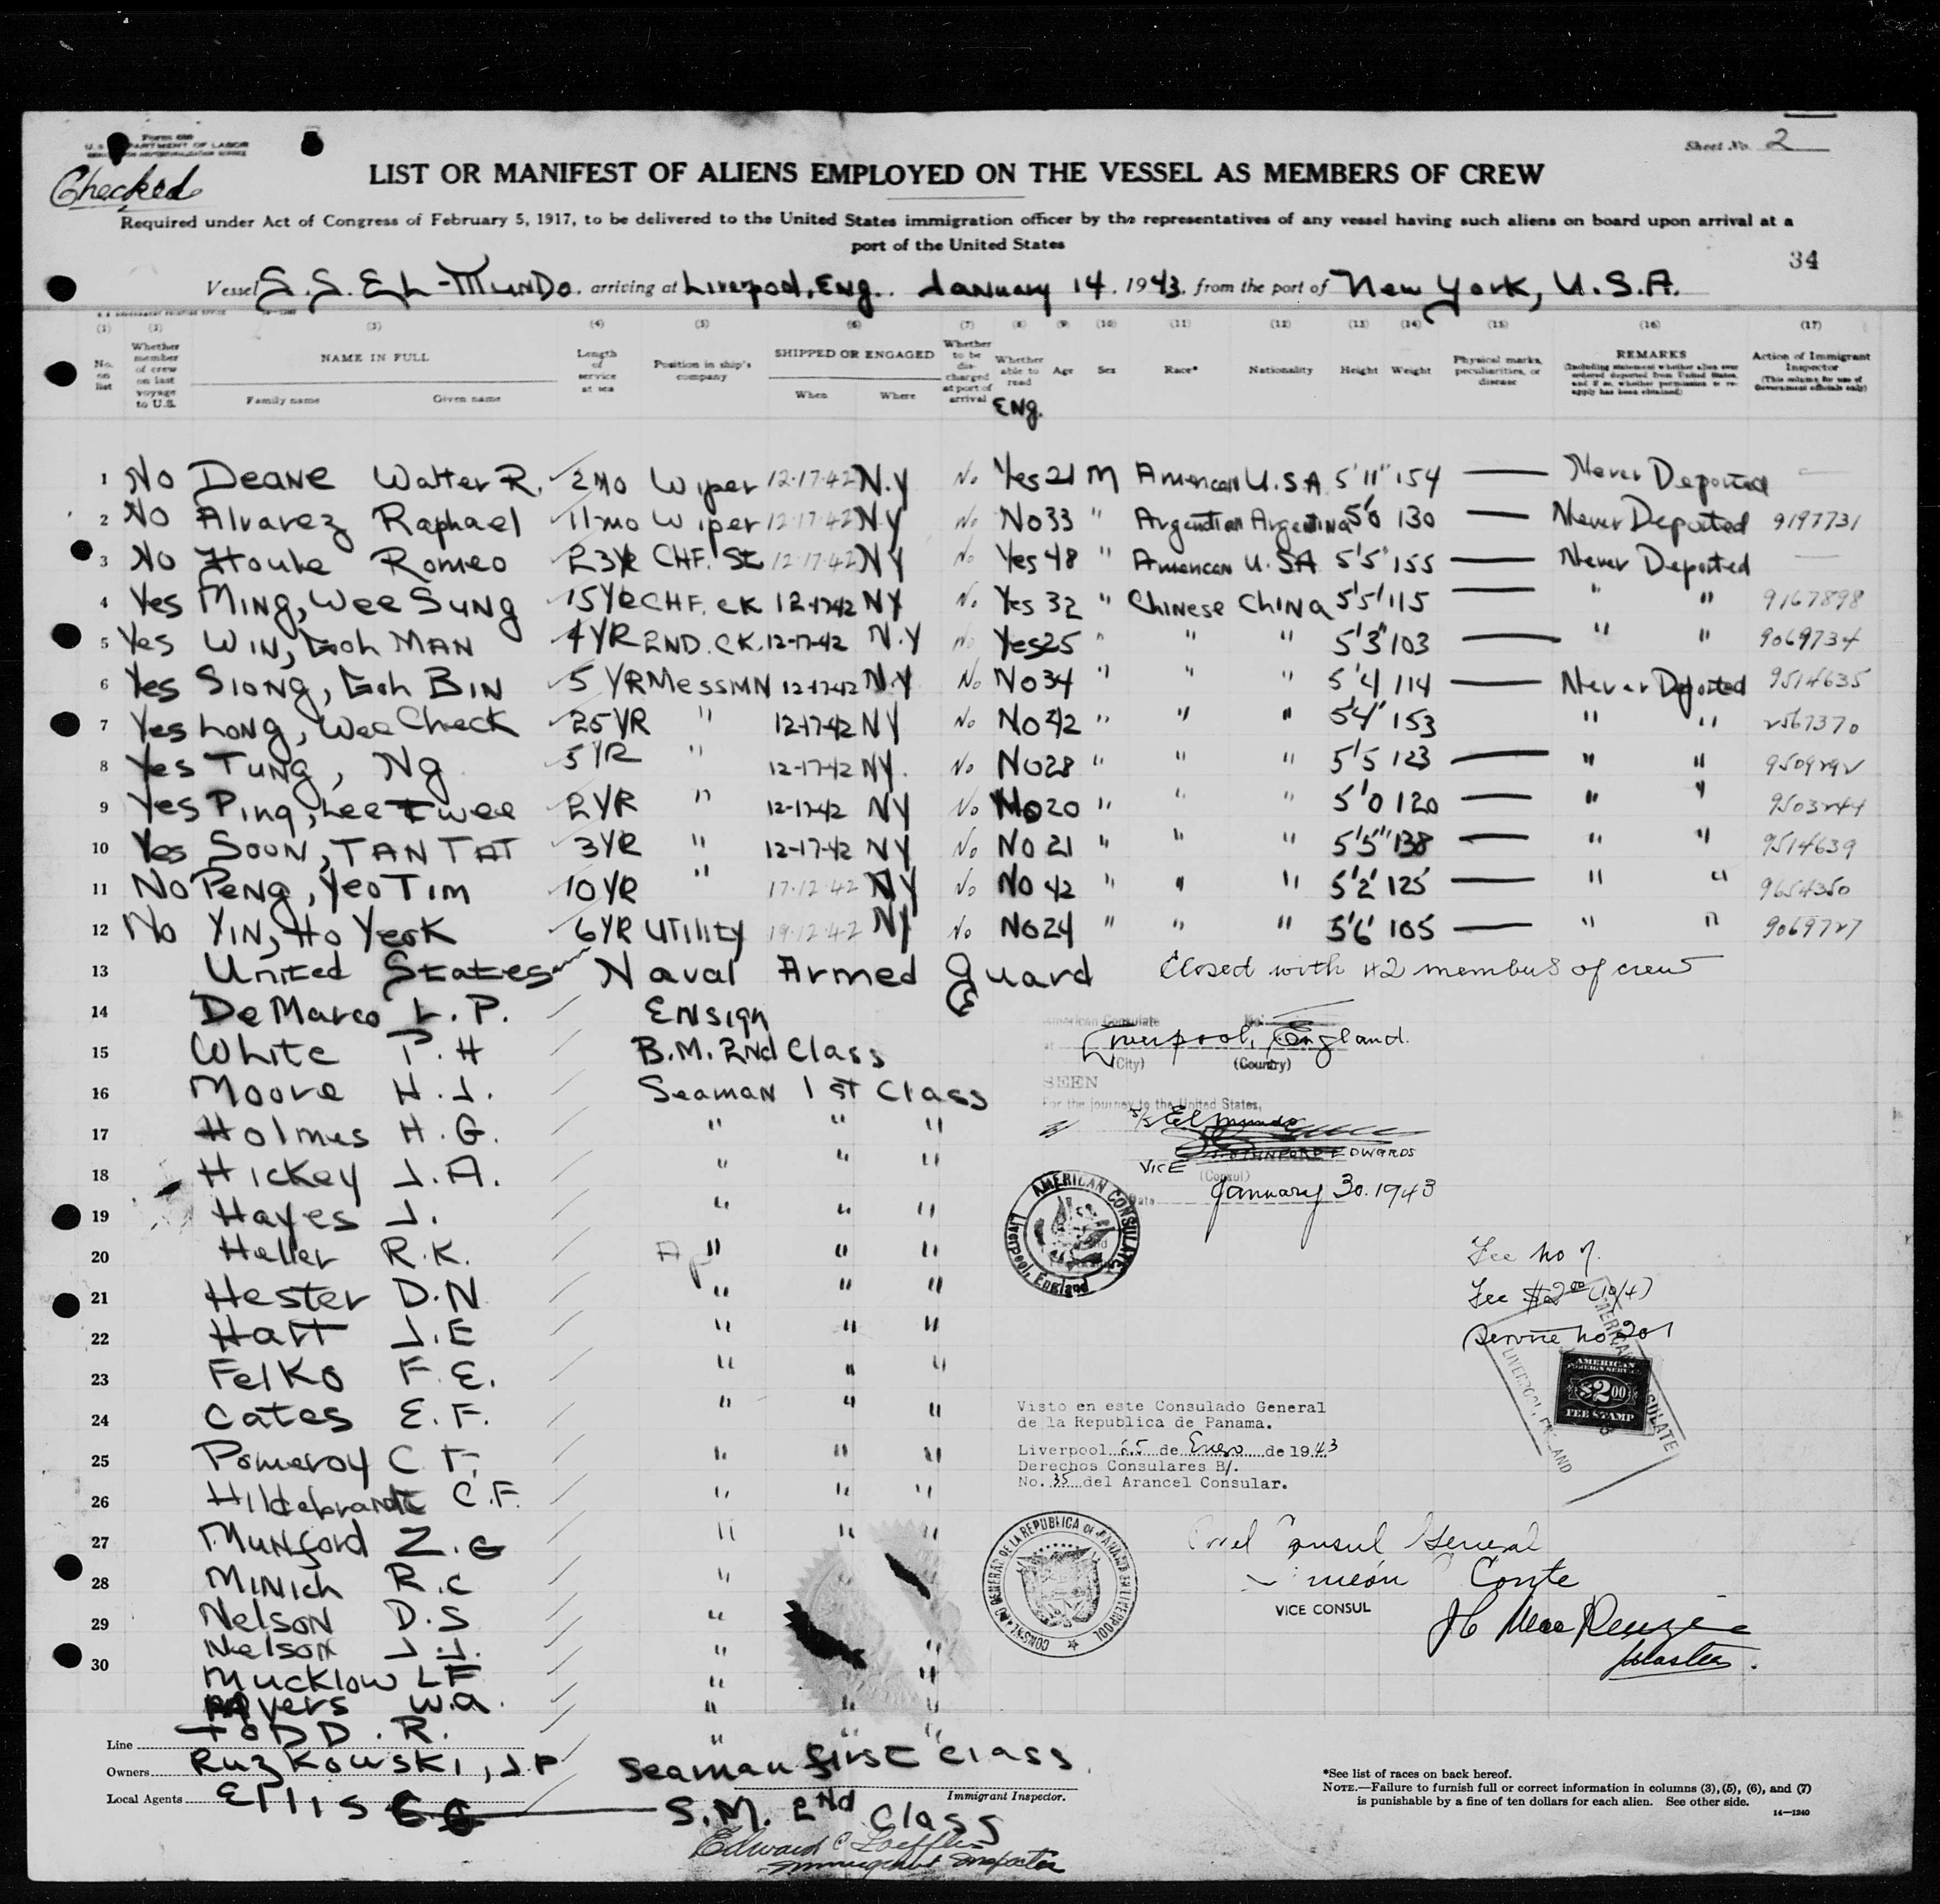 Form 680
U.S. DEPARTMENT OF LABOR
Checked
Sheet No. 2
LIST OR MANIFEST OF ALIENS EMPLOYED ON THE VESSEL AS MEMBERS OF CREW
Required under Act of Congress of February 5, 1917, to be delivered to the United States immigration officer by the representatives of any vessel having such aliens on board upon arrival at a
port of the United States
34
Vessel S.S. EL-MUNDO. arriving at Liverpool, Eng. January 14, 1943, from the port of New York, U.S.A.
(1) (2) (3) (4) (5) (6) (7) (8) (9) (10) (11) (12) (13) (14) (15) (16) (17)
No. on list Whether member of crew on last voyage to U.S. NAME IN FULL Family name Given name Length of service at sea Position in ship's company SHIPPED OR ENGAGED When Where Whether to be discharged at port of arrival Whether able to read Eng. Age Sex Race* Nationality Height Weight Physical marks, peculiarities, or disease REMARKS (Including statement whether alien ever ordered deported from United States, and if so, whether permission to reapply has been obtained) Action of Immigrant Inspector (This column for use of Government officials only)
1 No Deane Walter R. 2 Mo Wiper 12-17-42 N.Y No Yes 21 M American U.S.A 5'11" 154 — Never Deported —
2 No Alvarez Raphael 11 mo Wiper 12-17-42 NY No No 33 " Argentian Argentina 5'0 130 — Never Deported 9197731
3 No Houle Romeo 23 YR CHF. St 12-17-42 NY No Yes 48 " American U.SA 5'5" 155 — Never Deported —
4 Yes Ming, Wee Sung 15 YR CHF. CK 12-17-42 NY No Yes 32 " Chinese China 5'5" 115 — " " 9167898
5 Yes WIN, Goh MAN 4 YR 2ND. CK. 12-17-42 N.Y No Yes 25 " " " 5'3" 103 — " " 9069734
6 Yes Siong, Goh BIN 5 YR MessMN 12-17-42 N.Y No No 34 " " " 5'4 114 — Never Deported 9514635
7 Yes Long, Wee Check 25 YR " 12-17-42 NY No No 42 " " " 5'4" 153 " " 2567370
8 Yes Tung, Ng 5 YR " 12-17-42 NY. No No 28 " " " 5'5 123 — " " 9509292
9 Yes Ping, Lee Twee 2 YR " 12-17-42 NY No No 20 " " " 5'0 120 — " " 9503244
10 Yes Soon, TAN TAT 3 YR " 12-17-42 NY No No 21 " " " 5'5" 138 — " " 9514639
11 No Peng, Yeo Tim 10 YR " 17-12-42 NY No No 42 " " " 5'2' 125 — " " 9654350
12 No YIN, Ho Yerk 6 YR Utility 19-12-42 NY No No 24 " " " 5'6' 105 — " " 9069727
13 United States Naval Armed Guard Closed with 42 members of crew
14 De Marco L. P. Ensign
15 White P. H B.M. 2nd Class
16 Moore H. J. Seaman 1st Class
17 Holmes H. G. " " "
18 Hickey J. A. " " "
19 Hayes J. " " "
20 Heller R. K. " " "
21 Hester D. N " " "
22 Hart J. E " " "
23 Felko F. E. " " "
24 Cates E. F. " " "
25 Pomeroy C F. " " "
26 Hildebrandt C. F. " " "
27 Munford Z. G " " "
28 Minich R. C "
29 Nelson D. S "
Nelson J. J. " "
30 Mucklow L F " "
Myers W. A. " " "
Todd. R. " " "
Line
Owners Ruzkowski, J. P Seaman first Class
Local Agents Ellis
S.M. 2nd Class
Immigrant Inspector.
Edward C Loeffler
Immigrant Inspector
American Consulate
at Liverpool, England.
(City) (Country)
SEEN
For the journey to the United States,
S/S El Mundo
VICE EDWARDS
(Consul)
Date January 30. 1943
AMERICAN CONSULATE
Liverpool, England
Fee No 7.
Fee $2.00
Service No 201
AMERICAN CONSULATE
LIVERPOOL, ENGLAND
AMERICAN
FOREIGN SERVICE
$2.00
FEE STAMP
Visto en este Consulado General
de la Republica de Panama.
Liverpool 25 de Enero de 1943
Derechos Consulares B/.
No. 35 del Arancel Consular.
CONSULADO GENERAL DE LA REPUBLICA DE PANAMA EN LIVERPOOL
Por el Consul General
Conte
VICE CONSUL
J C MacKenzie
Master.
*See list of races on back hereof.
NOTE.—Failure to furnish full or correct information in columns (3), (5), (6), and (7)
is punishable by a fine of ten dollars for each alien. See other side.
14—1240